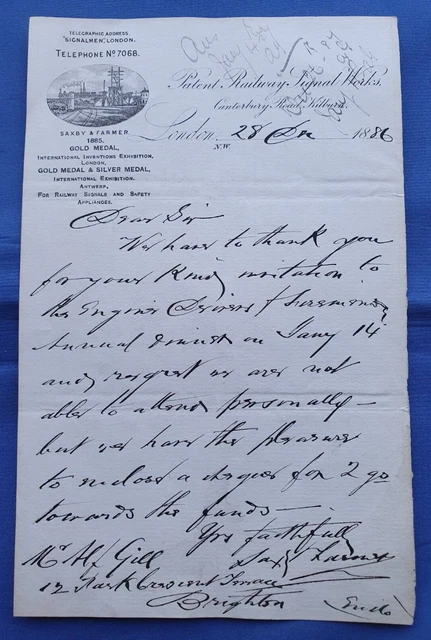 TELEGRAPHIC ADDRESS,
"SIGNALMEN", LONDON.
TELEPHONE No 7068.
SAXBY & FARMER
1885.
GOLD MEDAL,
INTERNATIONAL INVENTIONS EXHIBITION,
LONDON,
GOLD MEDAL & SILVER MEDAL,
INTERNATIONAL EXHIBITION.
ANTWERP,
FOR RAILWAY SIGNALS AND SAFETY
APPLIANCES.
Patent Railway Signal Works,
Canterbury Road, Kilburn.
London 28 Dec 1886
N.W.
Dear Sir
We have to thank you
for your kind invitation to
the Engine Drivers & Firemens
Annual dinner on Jany 14
and regret we are not
able to attend personally —
but we have the pleasure
to enclose a cheque for 2 gs
towards the funds —
Yrs faithfully
Saxby Farmer
Mr Alf Gill
12 Park Crescent Terrace
Brighton
Enclo